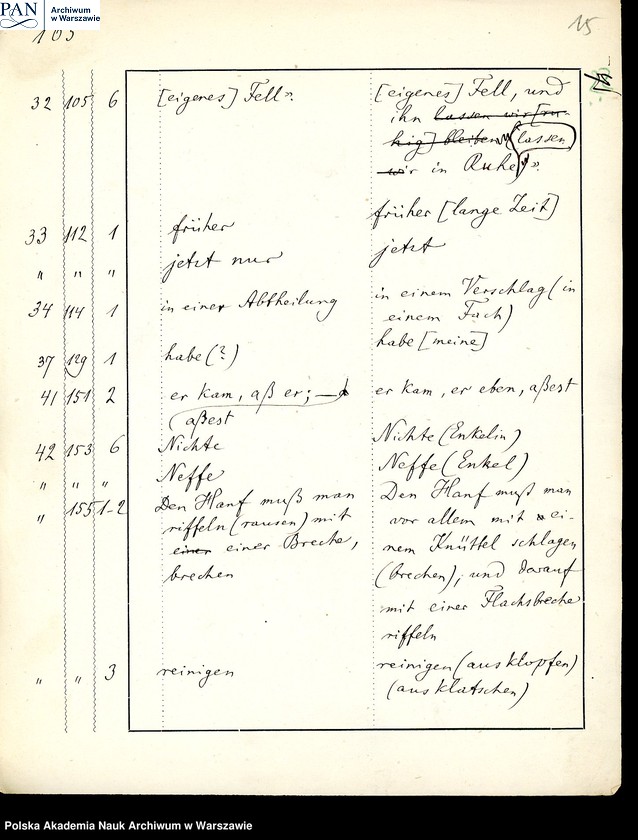 PAN
Archiwum
w Warszawie
103
15
32 105 6 [eigenes] Fell". [eigenes] Fell, und
ihn lassen wir [ru-
hig] bleiben lassen
wir in Ruhe".
33 112 1 früher früher [lange Zeit]
" " " jetzt nur jetzt
34 114 1 in einer Abtheilung in einem Verschlag (in
einem Fach)
37 129 1 habe (?) habe [meine]
41 151 2 er kam, aß er; — er kam, er eben, aßest
aßest
42 153 6 Nichte Nichte (Enkelin)
" " " Neffe Neffe (Enkel)
" 155 1-2 Den Hanf muß man Den Hanf muß man
riffeln (raufen) mit vor allem mit ei-
einer einer Breche, nem Knüttel schlagen
brechen (brechen), und darauf
mit einer Flachsbreche
riffeln
" " 3 reinigen reinigen (ausklopfen)
(ausklatschen)
Polska Akademia Nauk Archiwum w Warszawie